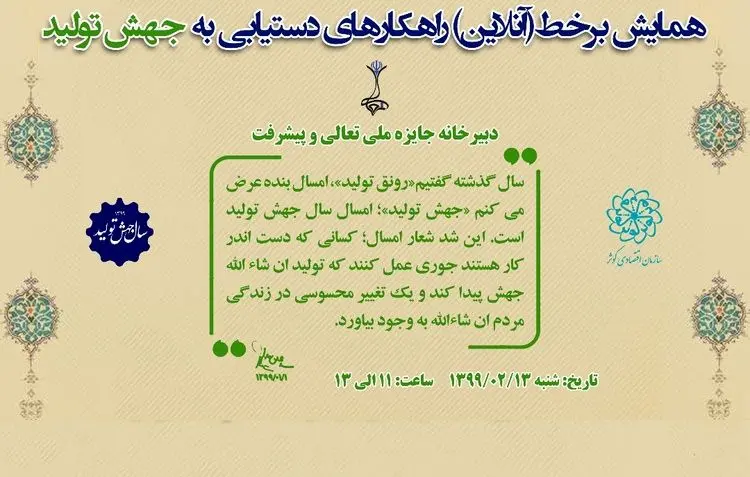 همایش برخط(آنلاین) راهکارهای دستیابی به جهش تولید
دبیرخانه جایزه ملی تعالی و پیشرفت
سال گذشته گفتیم«رونق تولید»، امسال بنده عرض
می کنم «جهش تولید»؛ امسال سال جهش تولید
است. این شد شعار امسال؛ کسانی که دست اندر
کار هستند جوری عمل کنند که تولید ان شاء الله
جهش پیدا کند و یک تغییر محسوسی در زندگی
مردم ان شاءالله به وجود بیاورد.
۱۳۹۹/۰۱/۱
سازمان اقتصادی کوثر
۱۳۹۹
سال جهش تولید
تاریخ: شنبه ۱۳۹۹/۰۲/۱۳ ساعت: ۱۱ الی ۱۳